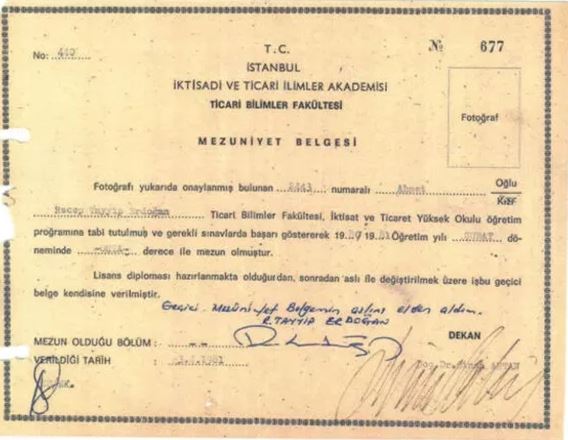 No: 440
T. C.
№ 677
İSTANBUL
İKTİSADİ VE TİCARİ İLİMLER AKADEMİSİ
TİCARİ BİLİMLER FAKÜLTESİ
Fotoğraf
MEZUNİYET BELGESİ
Fotoğrafı yukarıda onaylanmış bulunan 2443 numaralı Ahmet Oğlu
Kızı
Recep Tayyip Erdoğan Ticari Bilimler Fakültesi, İktisat ve Ticaret Yüksek Okulu öğretim
programına tabi tutulmuş ve gerekli sınavlarda başarı göstererek 1980 1981 Öğretim yılı ŞUBAT dö-
neminde -ORTA- derece ile mezun olmuştur.
Lisans diploması hazırlanmakta olduğundan, sonradan aslı ile değiştirilmek üzere işbu geçici
belge kendisine verilmiştir.
Geçici Mezuniyet Belgemin aslını elden aldım.
R. TAYYİP ERDOĞAN
MEZUN OLDUĞU BÖLÜM : - -
DEKAN
VERİLDİĞİ TARİH : 1981
Doç. Dr.